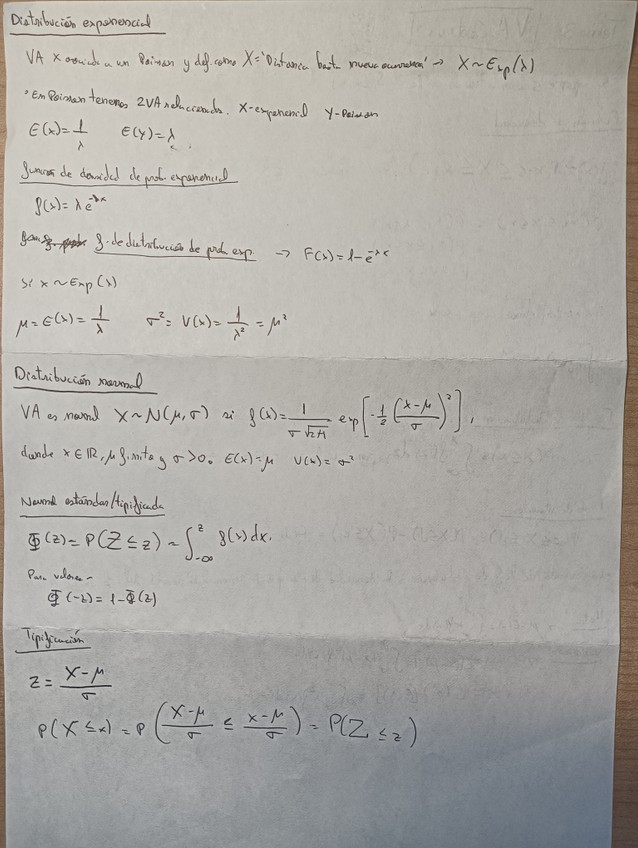 Distribución exponencial
VA X asociada a un Poisson y def. como X = "Distancia hasta nueva ocurrencia" → X ~ Exp(λ)
• En Poisson tenemos 2VA relacionadas. X-exponencial Y-Poisson
E(x) = 1/λ E(y) = λ
función de densidad de prob. exponencial
f(x) = λ e^{-λx}
f. de distribución de prob. exp. → F(x) = 1 - e^{-λx}
Si x ~ Exp(λ)
μ = E(x) = 1/λ σ² = V(x) = 1/λ² = μ²
Distribución normal
VA es normal X ~ N(μ, σ) si f(x) = 1/(σ√2π) exp[-1/2 ((x-μ)/σ)²],
donde x ∈ ℝ, μ finito y σ > 0. E(x) = μ V(x) = σ²
Normal estándar/tipificada
Φ(z) = P(Z ≤ z) = ∫_{-∞}^{z} f(x) dx.
Para valores -
Φ(-z) = 1 - Φ(z)
Tipificación
z = (X-μ)/σ
P(X ≤ x) = P((X-μ)/σ ≤ (x-μ)/σ) = P(Z ≤ z)